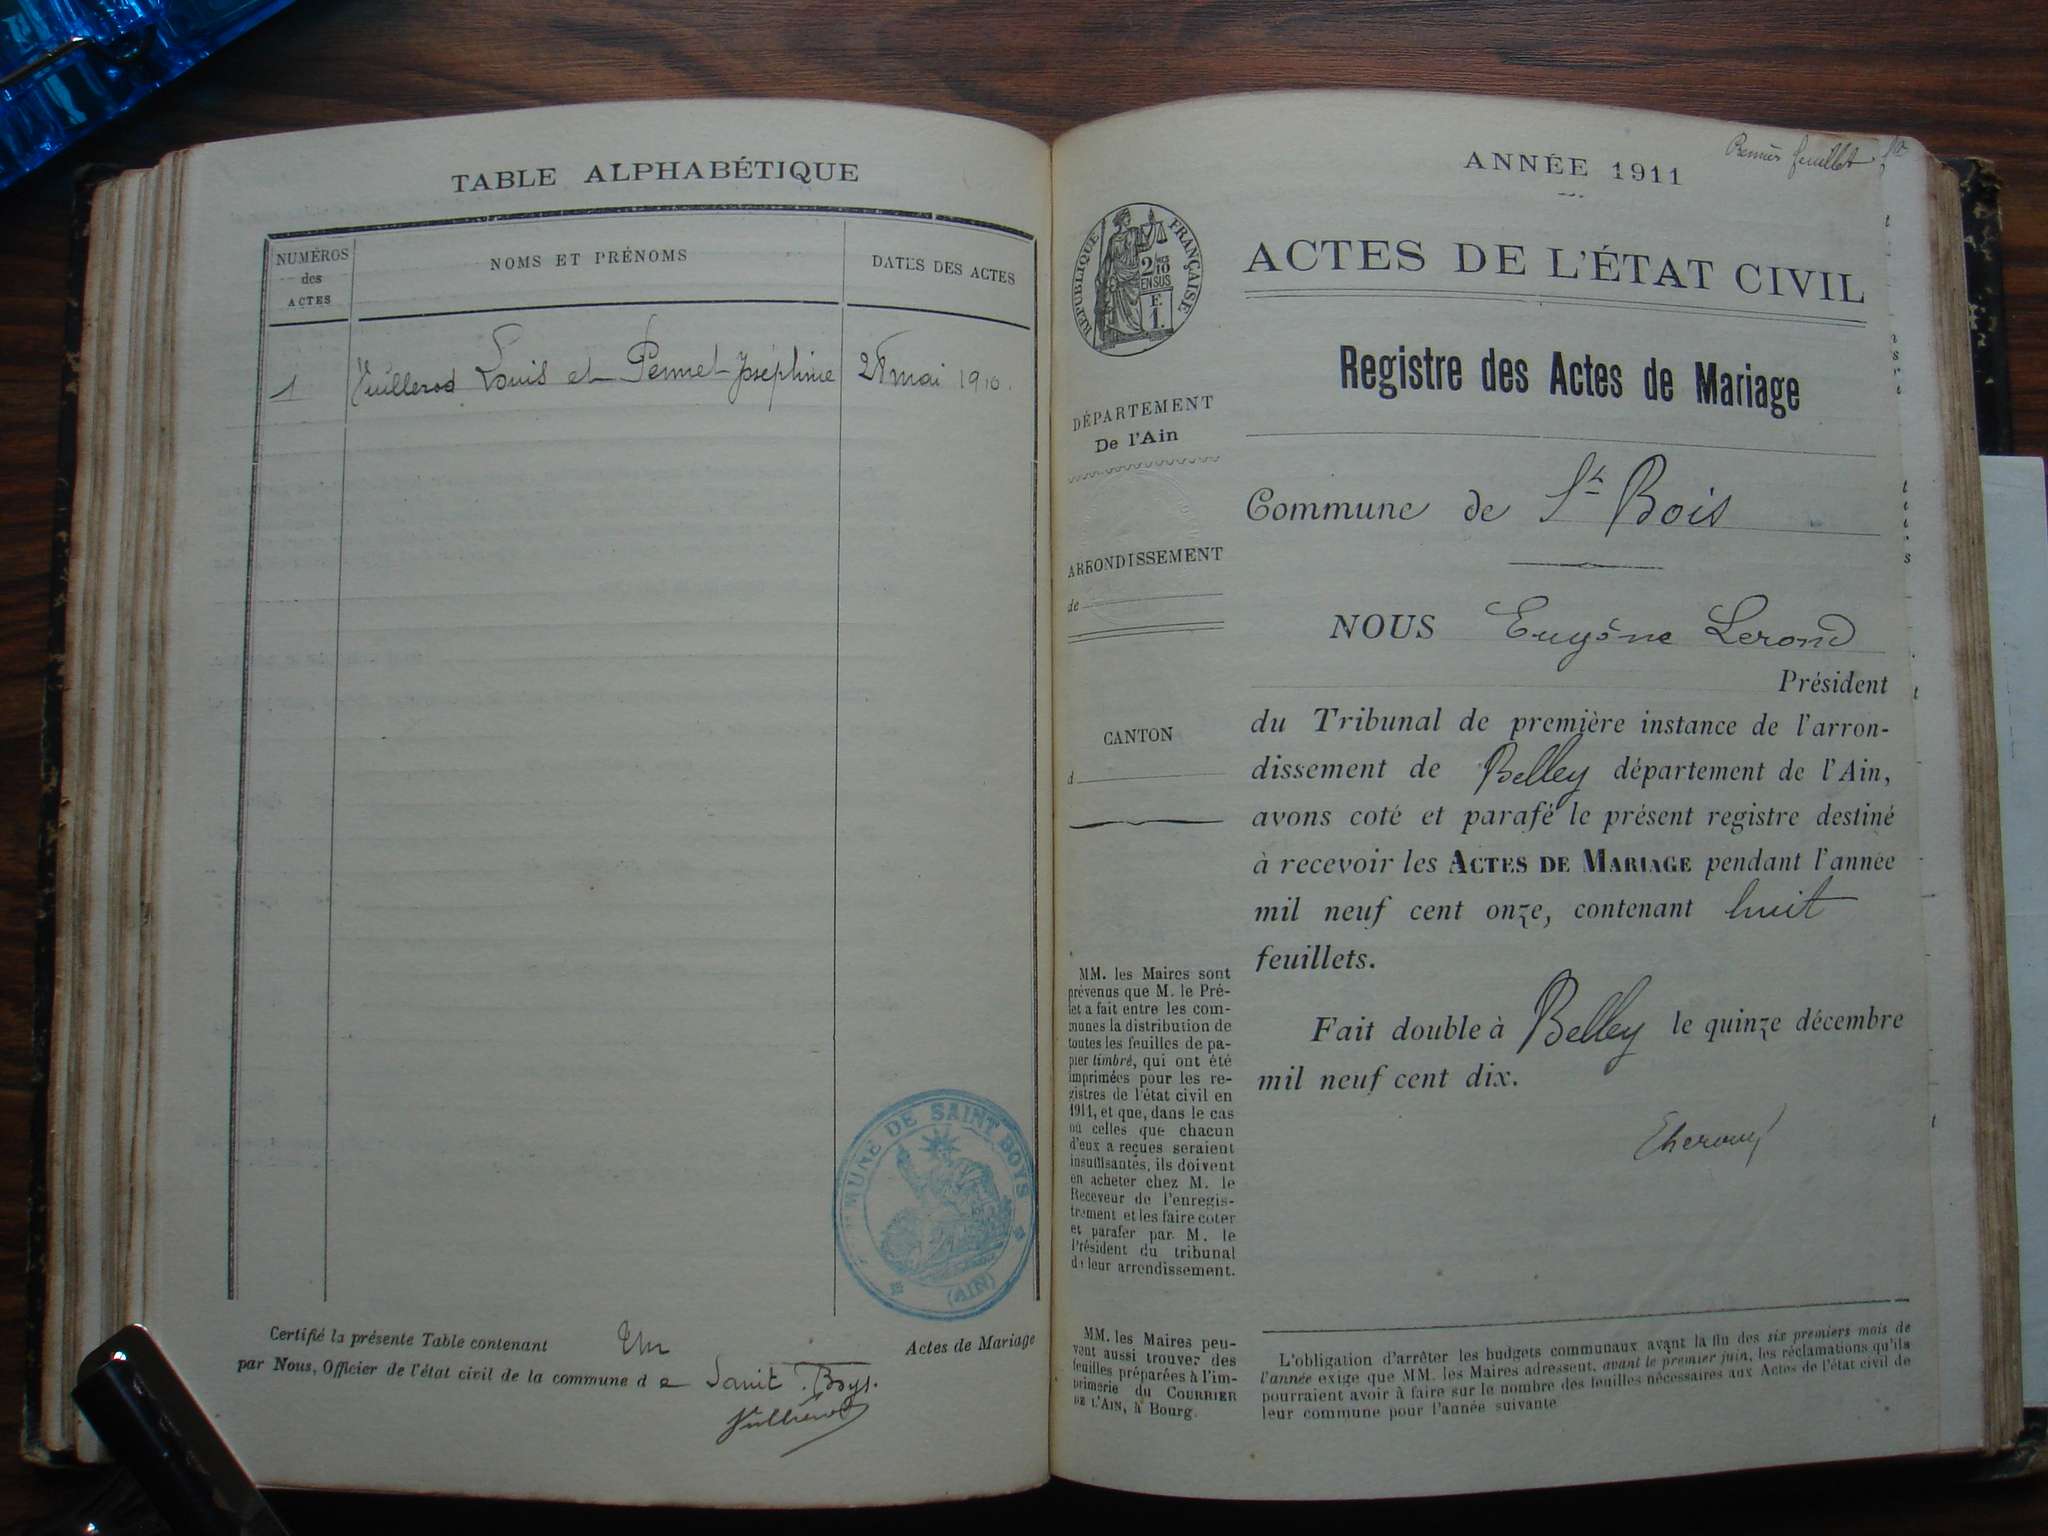 TABLE ALPHABÉTIQUE
NUMÉROS
des
ACTES
NOMS ET PRÉNOMS
DATES DES ACTES
1
Vuillerod Louis et Pennet Joséphine
28 mai 1910.
MUNE DE SAINT BOYS
(AIN)
Certifié la présente Table contenant Un Actes de Mariage
par Nous, Officier de l'état civil de la commune d e Saint Boys.
Premier feuillet
ANNÉE 1911
RÉPUBLIQUE FRANÇAISE
2/10
EN SUS
F.
1.
ACTES DE L'ÉTAT CIVIL
Registre des Actes de Mariage
DÉPARTEMENT
De l'Ain
ARRONDISSEMENT
de
CANTON
d
Commune de St Bois
NOUS Eugène Lerond
Président
du Tribunal de première instance de l'arron-
dissement de Belley département de l'Ain,
avons coté et parafé le présent registre destiné
à recevoir les ACTES DE MARIAGE pendant l'année
mil neuf cent onze, contenant huit
feuillets.
Fait double à Belley le quinze décembre
mil neuf cent dix.
MM. les Maires sont
prévenus que M. le Pré-
fet a fait entre les com-
munes la distribution de
toutes les feuilles de pa-
pier timbré, qui ont été
imprimées pour les re-
gistres de l'état civil en
1911, et que, dans le cas
où celles que chacun
d'eux a reçues seraient
insuffisantes, ils doivent
en acheter chez M. le
Receveur de l'enregis-
trement et les faire coter
et parafer par M. le
Président du tribunal
de leur arrondissement.
MM. les Maires peu-
vent aussi trouver des
feuilles préparées à l'im-
primerie du COURRIER
DE L'AIN, à Bourg.
L'obligation d'arrêter les budgets communaux avant la fin des six premiers mois de
l'année exige que MM. les Maires adressent, avant le premier juin, les réclamations qu'ils
pourraient avoir à faire sur le nombre des feuilles nécessaires aux Actes de l'état civil de
leur commune pour l'année suivante